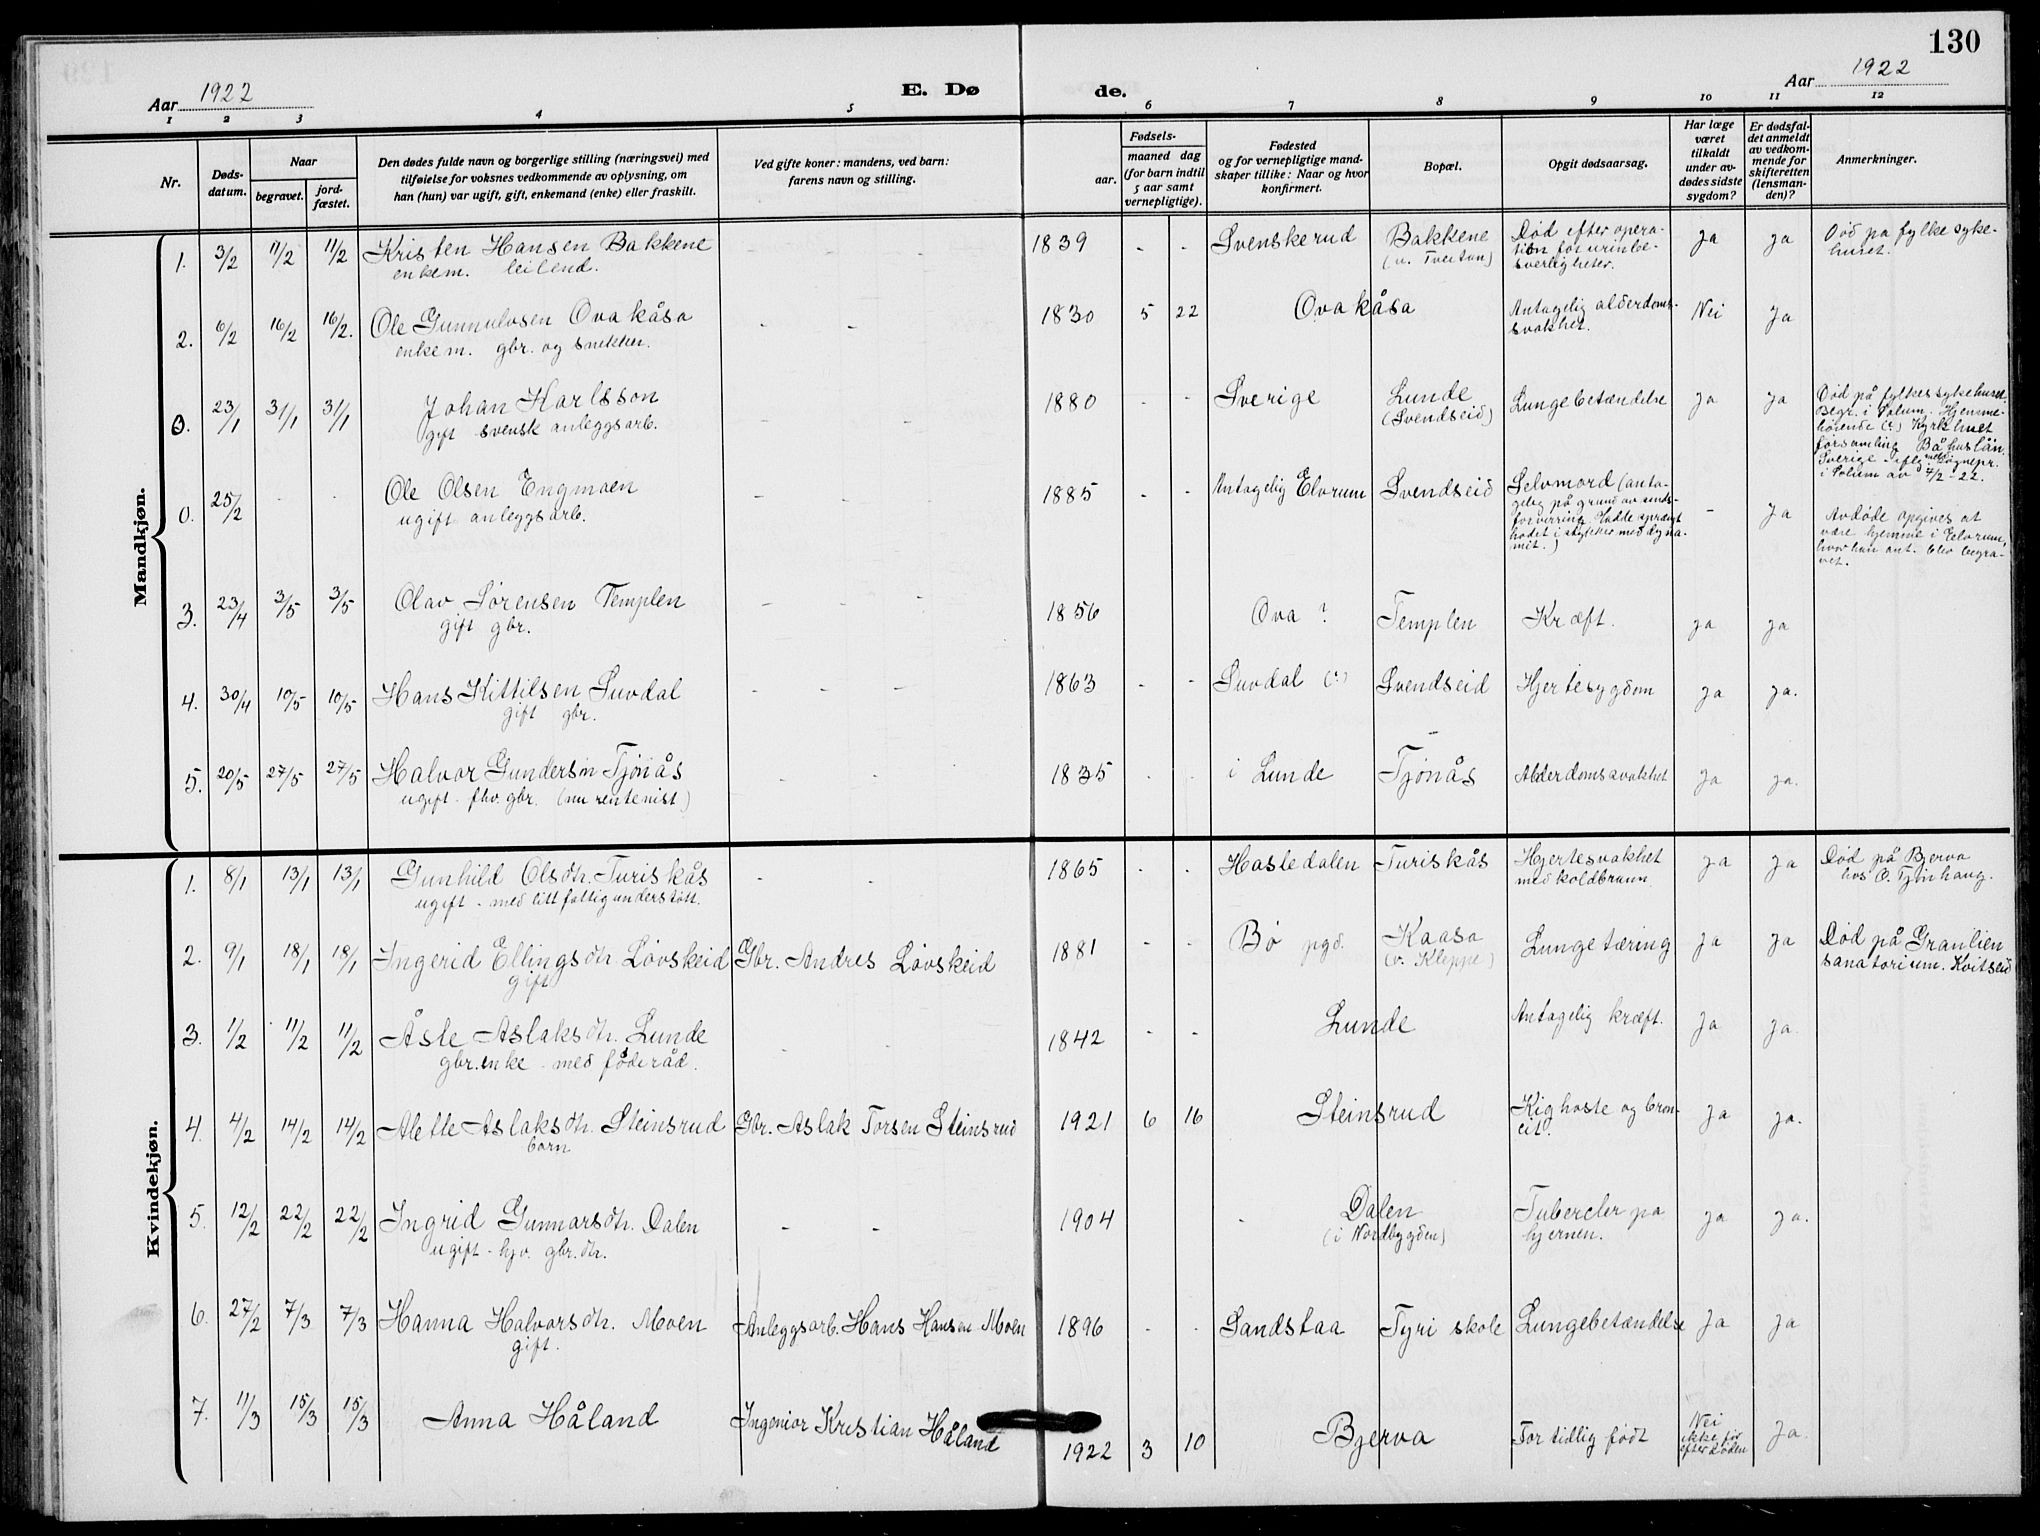 130
Aar 1922
E. Dø de.
Aar 1922
1 2 3 4 5 6 7 8 9 10 11 12
Nr.
Døds-
datum.
Naar
begravet.
jord-
fæstet.
Den dødes fulde navn og borgerlige stilling (næringsvei) med
tilføielse for voksnes vedkommende av oplysning, om
han (hun) var ugift, gift, enkemand (enke) eller fraskilt.
Ved gifte koner: mandens, ved barn:
farens navn og stilling.
Fødsels-
aar.
maaned dag
(for barn indtil
5 aar samt
vernepligtige).
Fødested
og for vernepligtige mand-
skaper tillike: Naar og hvor
konfirmert.
Bopæl.
Opgit dødsaarsag.
Har læge
været
tilkaldt
under av-
dødes sidste
sygdom?
Er dødsfal-
det anmeldt
av vedkom-
mende for
skifteretten
(lensman-
den)?
Anmerkninger.
Mandkjøn.
1. 3/2 11/2 11/2 Kristen Hansen Bakkene - - 1839 - - Svenskerud Bakkene Død efter opera- Ja Ja Død på fylke syke-
enkem. leilend. (v. Tveitan) tion for urinbe- huset.
sverligheter.
2. 6/2 16/2 16/2. Ole Gunnulvsen Ovakåsa - - 1830 5 22 Ovakåsa Antagelig alderdoms- Nei Ja
enkem. gbr. og snekker. svakhet.
0. 23/1 31/1 31/1 Johan Karlsson - - 1880 - - Sverige Lunde Lungebetændelse Ja Ja Død på fylkessykehuset.
gift svensk anleggsarb. (Svendseid) Begr. i Solum. Hjemme-
hørende (?) Kyrkhuet
församling Båhuslän.
Sverige - iflg. meld. Sognepr.
i Solum av 7/2 - 22.
0. 25/2 - - Ole Olsen Engmoen - - 1885 - - Antagelig Elvrum Svendseid Selvmord (anta- - Ja
ugift anleggsarb. gelig på grund av sinds-
forvirring. Hadde sprængt
hodet i stykker med dyna-
mit.)
Avdøde opgives at
være hjemme i Elvrum,
hvor han ant. blev begra-
vet.
3. 23/4 3/5 3/5 Olav Sørensen Templen - - - 1856 Ova ? Templen Kræft. Ja Ja
gift gbr.
4. 30/4 10/5 10/5 Hans Kittilsen Suvdal - - - 1863 - - Suvdal (?) Svendseid Hjertesygdom Ja Ja.
gift gbr.
5. 20/5 27/5 27/5 Halvor Gundersen Tjønås - - 1835 - - i Lunde Tjønås Alderdomssvakhet Ja Ja.
ugift - fhv. gbr. (nu rentenist)
Kvindekjøn.
1. 8/1 13/1 13/1 Gunhild Olsdtr. Turiskås - - 1865 - - Hasledalen Turiskås Hjertesvakhet Ja Ja Død på Bjerva
ugift - med litt fattigunderstøtt. med koldbrann. hos O. Tjønhaug.
2. 9/1 18/1 18/1 Ingerid Ellingsdtr Løvskeid Gbr. Andres Løvskeid 1881 - - Bø pgd. Kaasa Lungetæring Ja Ja Død på Granlien
gift (v. Kleppe) sanatorium. Kvitseid
3. 1/2 11/2 11/2 Åste Aslaksdtr. Lunde - - 1842 - - Lunde Antagelig kræft. Ja Ja.
gbr.enke - med føderåd.
4. 4/2 14/2 14/2 Alette Aslaksdtr. Steinsrud Gbr. Aslak Torsen Steinsrud 1921 6 16 Steinsrud Kighoste og bron- Ja Ja.
barn cit.
5. 12/2 22/2 22/2 Ingrid Gunnarsdtr. Dalen - - 1904 - Dalen Tubercler på Ja Ja.
ugift - hjv. gbr. dtr. (i Nordbygden) hjernen.
6. 27/2 7/3 7/3 Hanna Halvorsdtr. Moen Anleggsarb. Hans Hansen Moen 1896 - - Sandstaa Tyri skole Lungebetændelse Ja Ja
gift.
7. 11/3 15/3 15/3 Anna Håland Ingeniør Kristian Håland 1922 3 10 Bjerva For tidlig født Nei Ja.
ikke før
efter døden